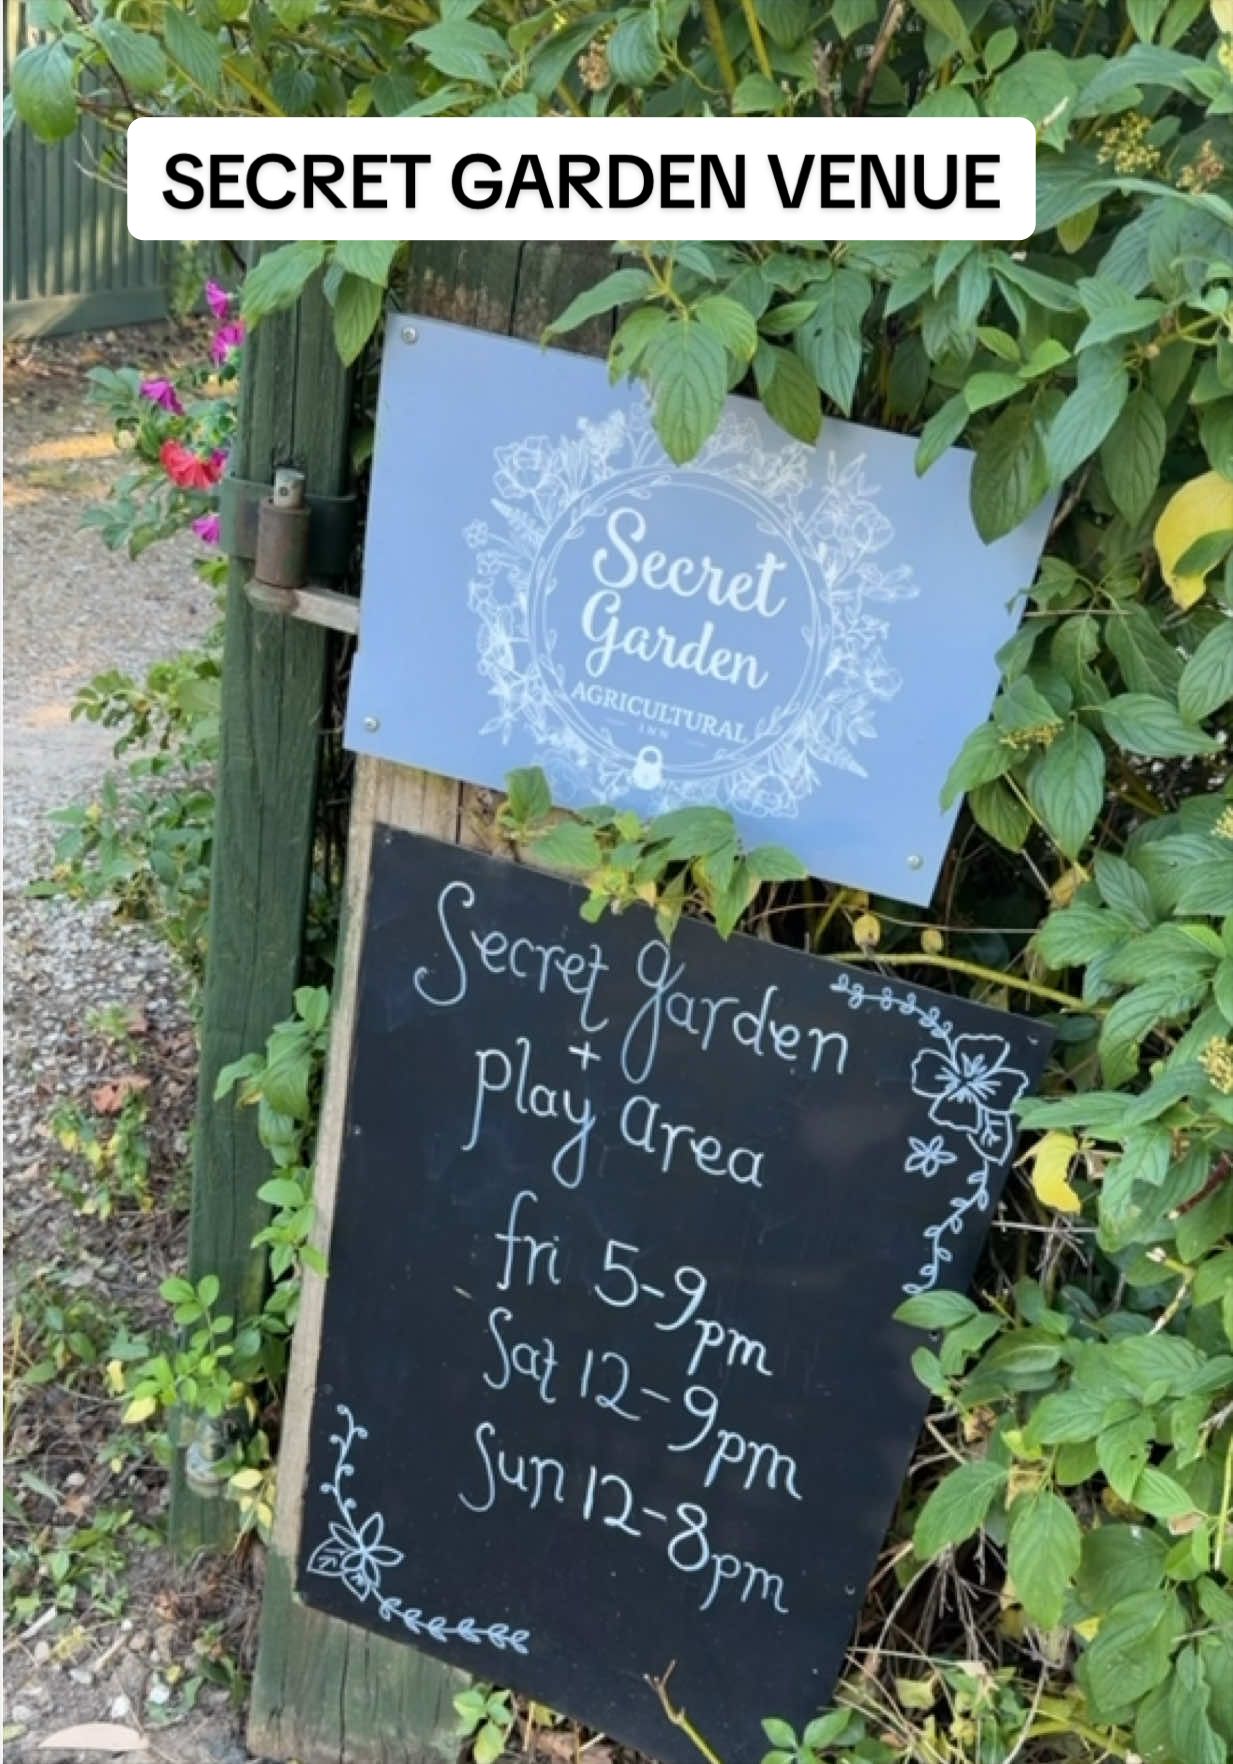 SECRET GARDEN VENUE
Secret
Garden
AGRICULTURAL
INN
Secret garden
+
play area
fri 5-9pm
Sat 12-9pm
Sun 12-8pm